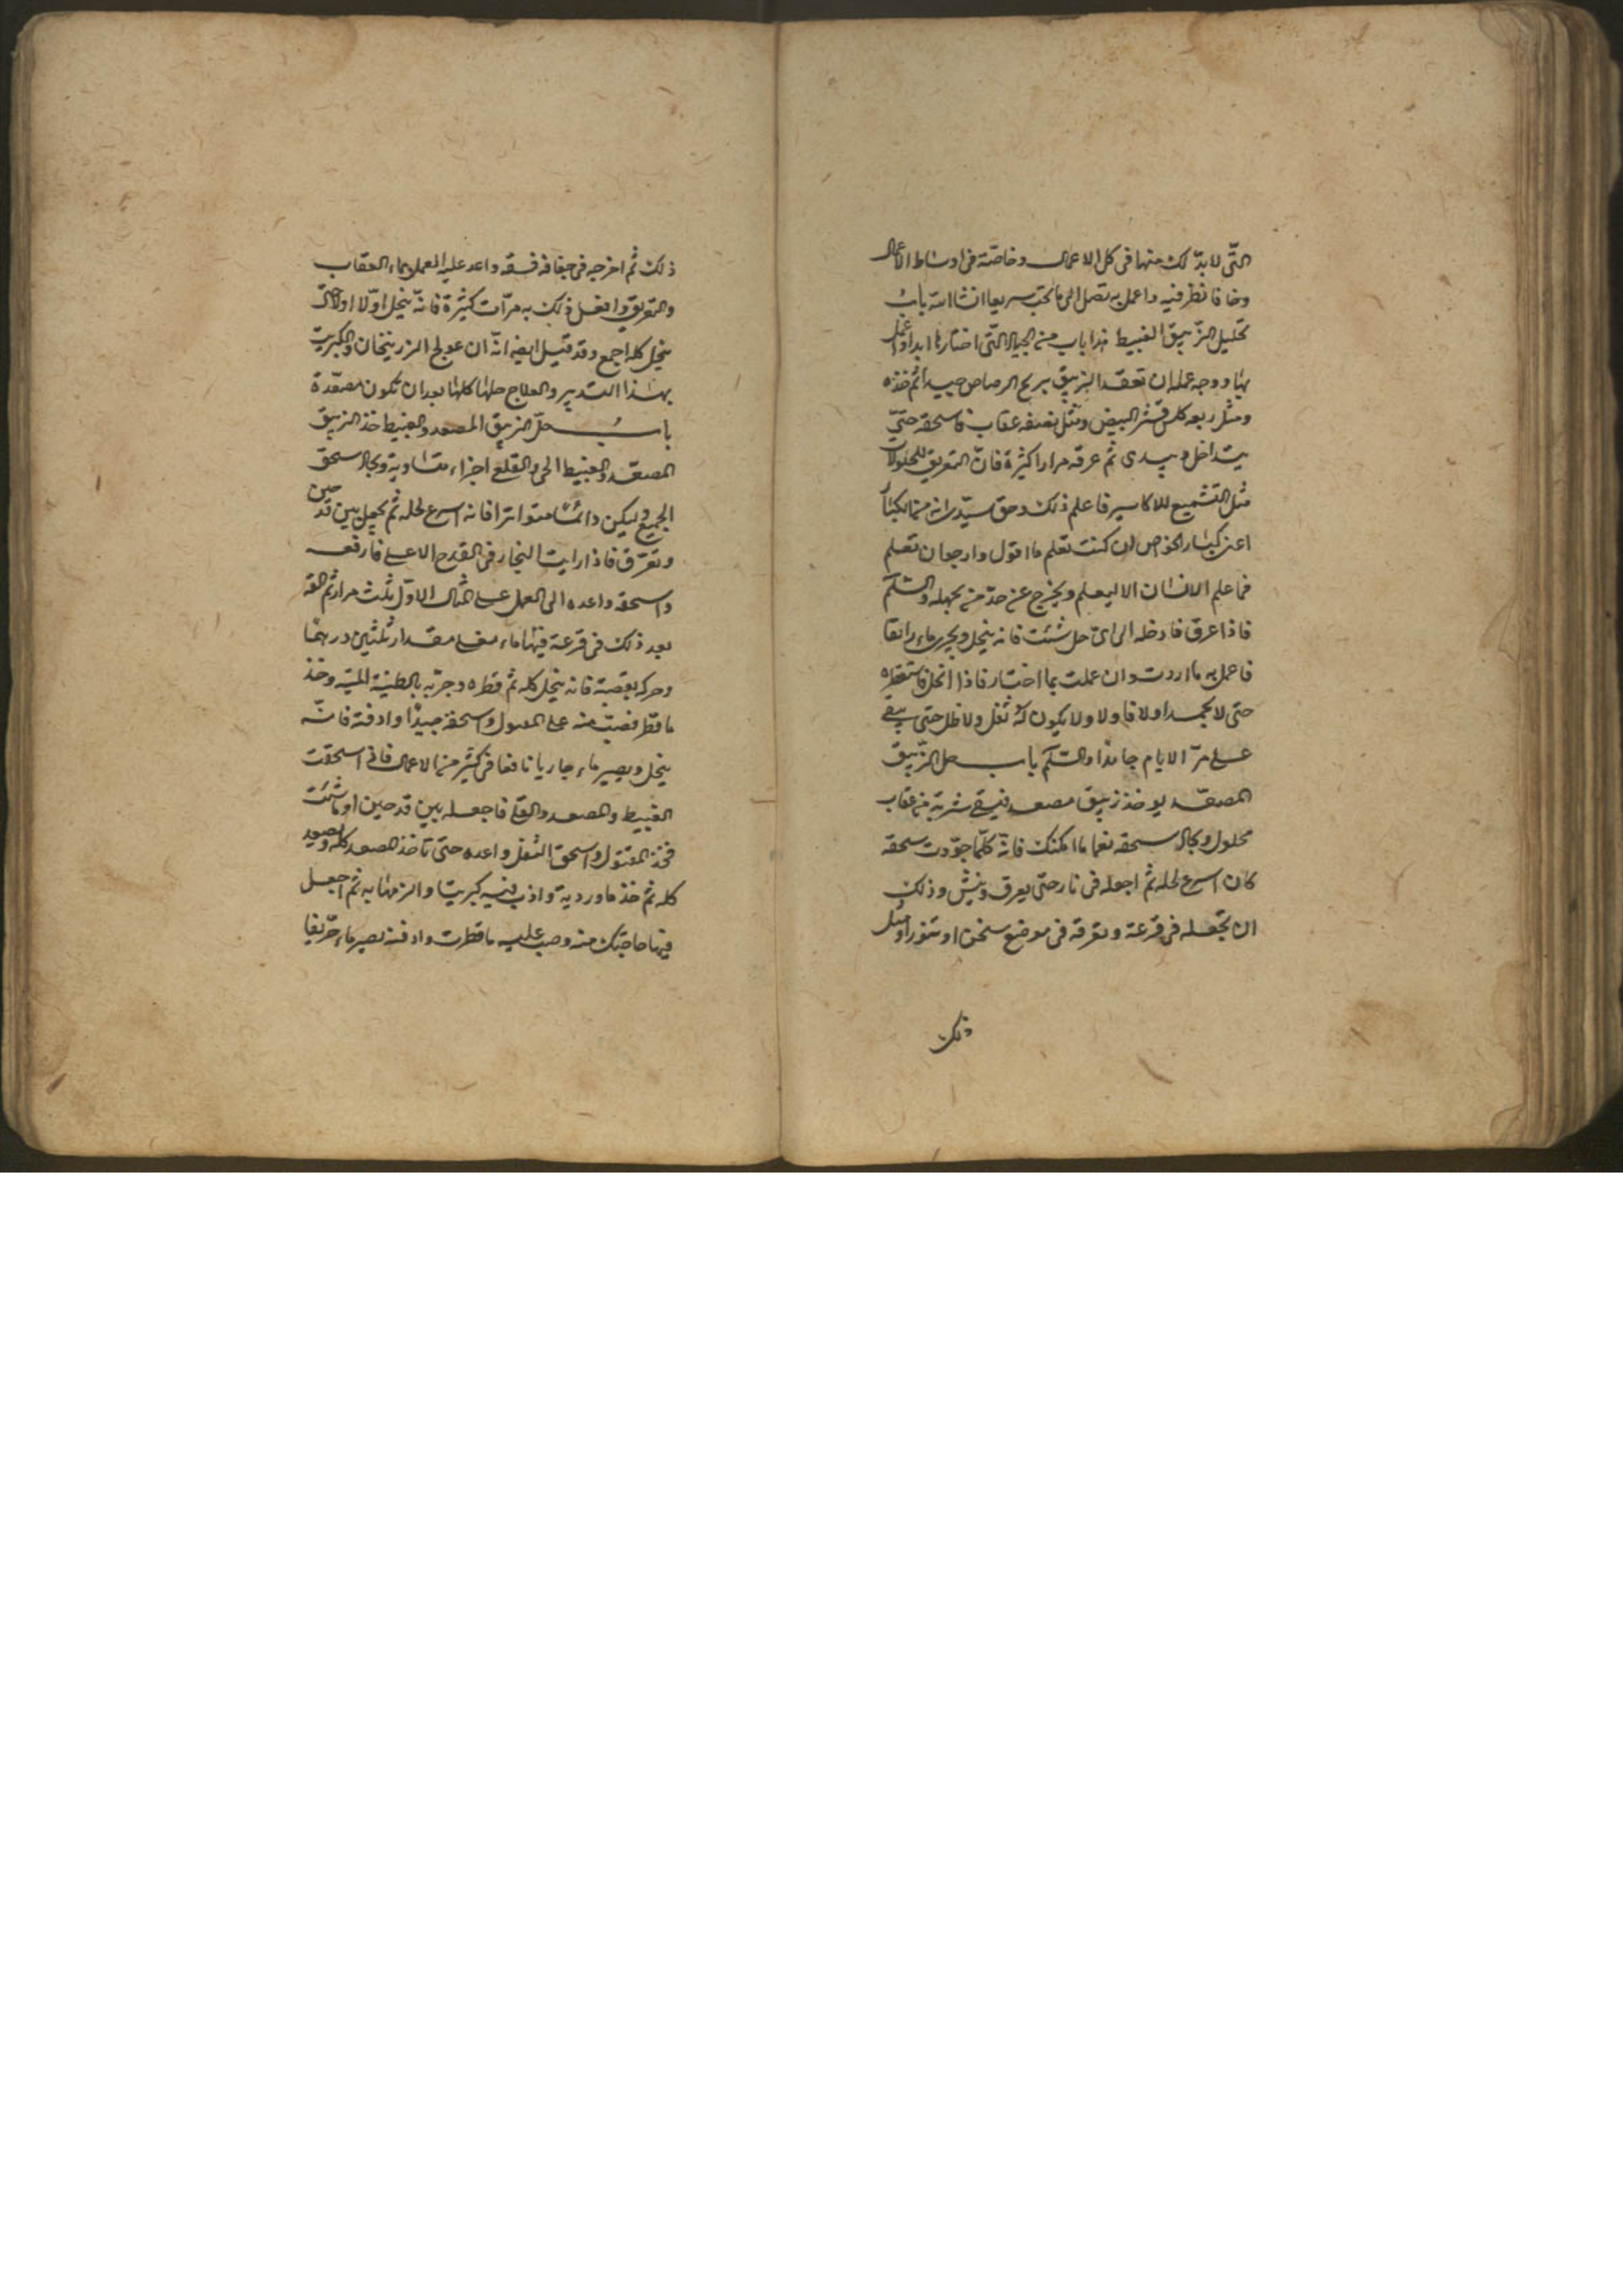 التّى لا بدّ لك منها فى كل الاعمال وخاصّة فى اوساط الاعمال
وخا فانظر فيه واعمل به تصل الى ما تحب سريعا انشا الله باب
تحليل الزّيبق الغبيط هذا باب من الجياد التّى اختارها ابدا واعمل
بها ووجه عمله ان تعقد الزيبق بريح الرصاص جيدا ثم خذه
ومثل ربعه كلس قشر البيض ومثل نصفه عقاب فاسحقه حتّى
يتداخل ويبدى ثم عرقه مرارا كثيرة فانّ التعريق للمحلولات
مثل التشميع للاكاسير فاعلم ذلك وحق سيّدى انه من
اعز كبار الخواص ان كنت تعلم ما اقول وارجو ان تعلم
فما علم الانسان الا ليعلم ويخرج عن حدّ من يجهله والسّلم
فاذا عرق فادخله الى اىّ حل شئت فانه ينحل ويجرى ماء رائقا
فاعمل به ما اردت وان عملت بما اختار فاذا انحل فاستقطره
حتى لا يجمد اولا فاولا ولا يكون له ثفل ولا ظل حتى يبقى
على مرّ الايام جامدا والسّلم باب حل الزّيبق
المصعّد يوخذ زيبق مصعد فيسقى شربة من عقاب
محلول ويجاد سحقه نعما ما امكنك فانّه كلّما جوّدت سحقه
كان اسرع لحله ثم اجعله فى نار حتى يعرق وينشّ وذلك
ان تجعله فى قرعة وتعرقه فى موضع سخن او تنور او مثل
ذلك
ذلك ثم اخرجه فى جفافه فسقه واعد عليه العمل بماء العقاب
والتعريق وافعل ذلك به مرّات كثيرة فانّه ينحل اوّلا اولا حتّى
ينحل كله اجمع وقد قيل ايضا انّه ان عولج الزرنيخان والكبريت
بهذا التدبير والعلاج حلها كلها بعد ان تكون مصعّدة
باب حلّ الزيبق المصعد والغبيط خذ الزيبق
المصعّد والغبيط الحى والقلع اجزاء متساوية ويجاد سحق
الجميع وليكن دائما متواترا فانه اسرع لحله ثم يجعل بين قدحين
وتعرّق فاذا رايت البخار فى القدح الاعلى فارفعه
واسحقه واعده الى العمل على المثال الاوّل ثلث مرار ثم القه
بعد ذلك فى قرعة فيها ماء مغلى مقدار ثلثين درهما
وحركه بقصبة فانه ينحل كله ثم قطره وجرّبه بالطينة الليّنة وخذ
ما قطر فصبّ منه على المعمول واسحقه جيّدا وادفنه فانّه
ينحل ويصير ماء جاريا نافعا فى كثير من الاعمال فانى اسحقت
الغبيط والمصعد والقلع فاجعله بين قدحين او ما شئت
فخذ المقتول واسحق الثفل واعده حتى تاخذ المصعد كله ويصعد
كله ثم خذ ماوردية واذب فيه كبريتا والزمها به ثم اجعل
فيها حاجتك منه وصب عليه ما قطرت وادفنه يصير ماء حرّيفا